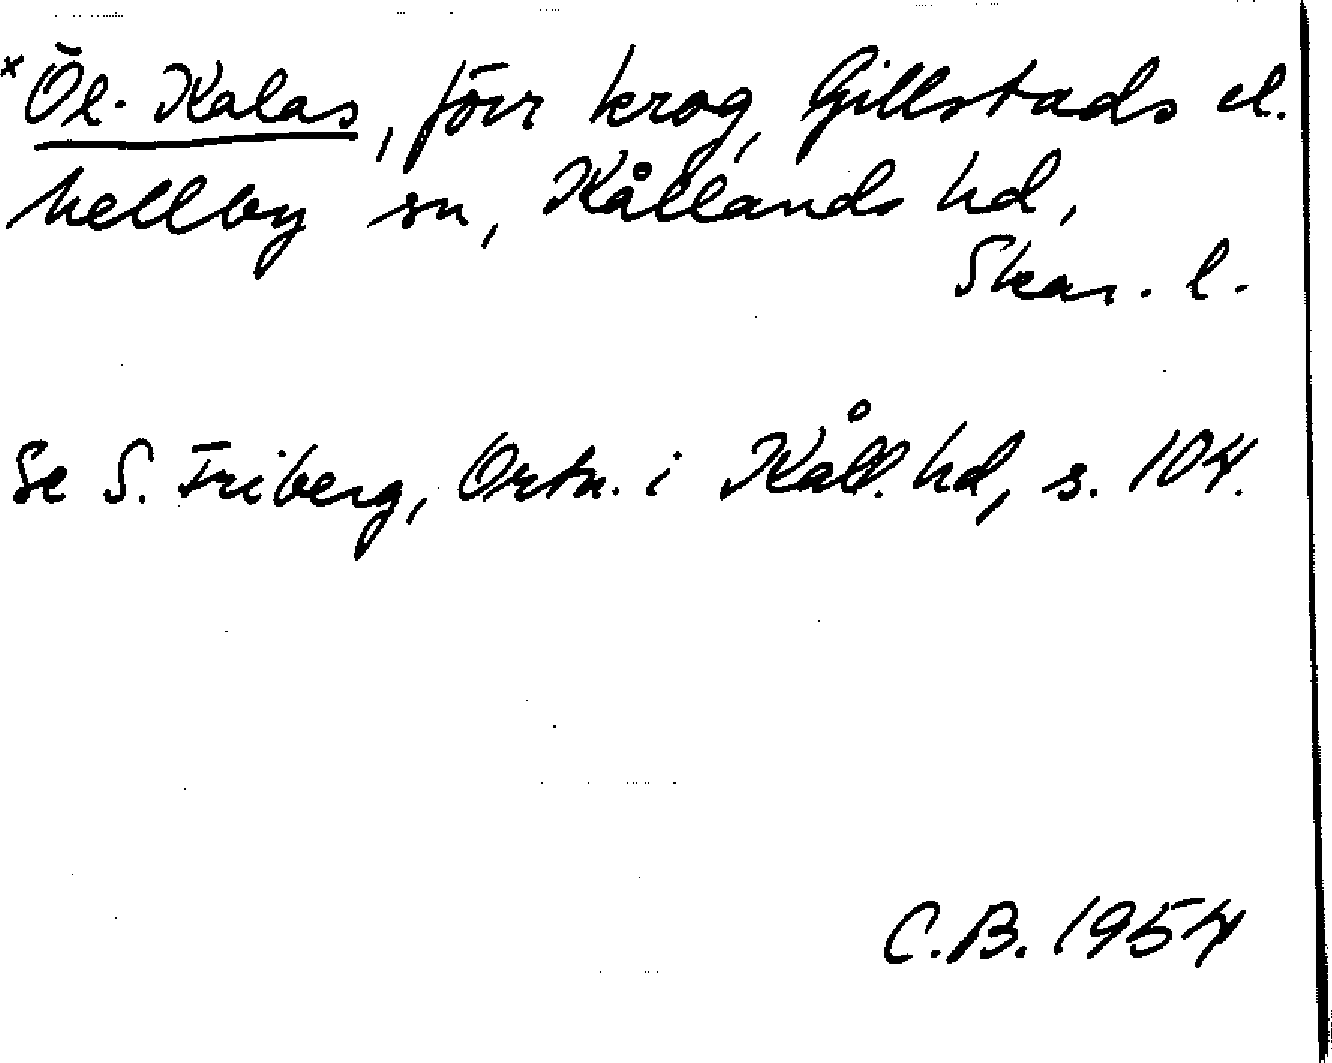 × Öl-Kalas, förr krog, Gillstads el.
Mellby sn, Kållands hd,
Skar. l.
Se S. Friberg, Ortn. i Kåll. hd, s. 104.
C.B. 1954